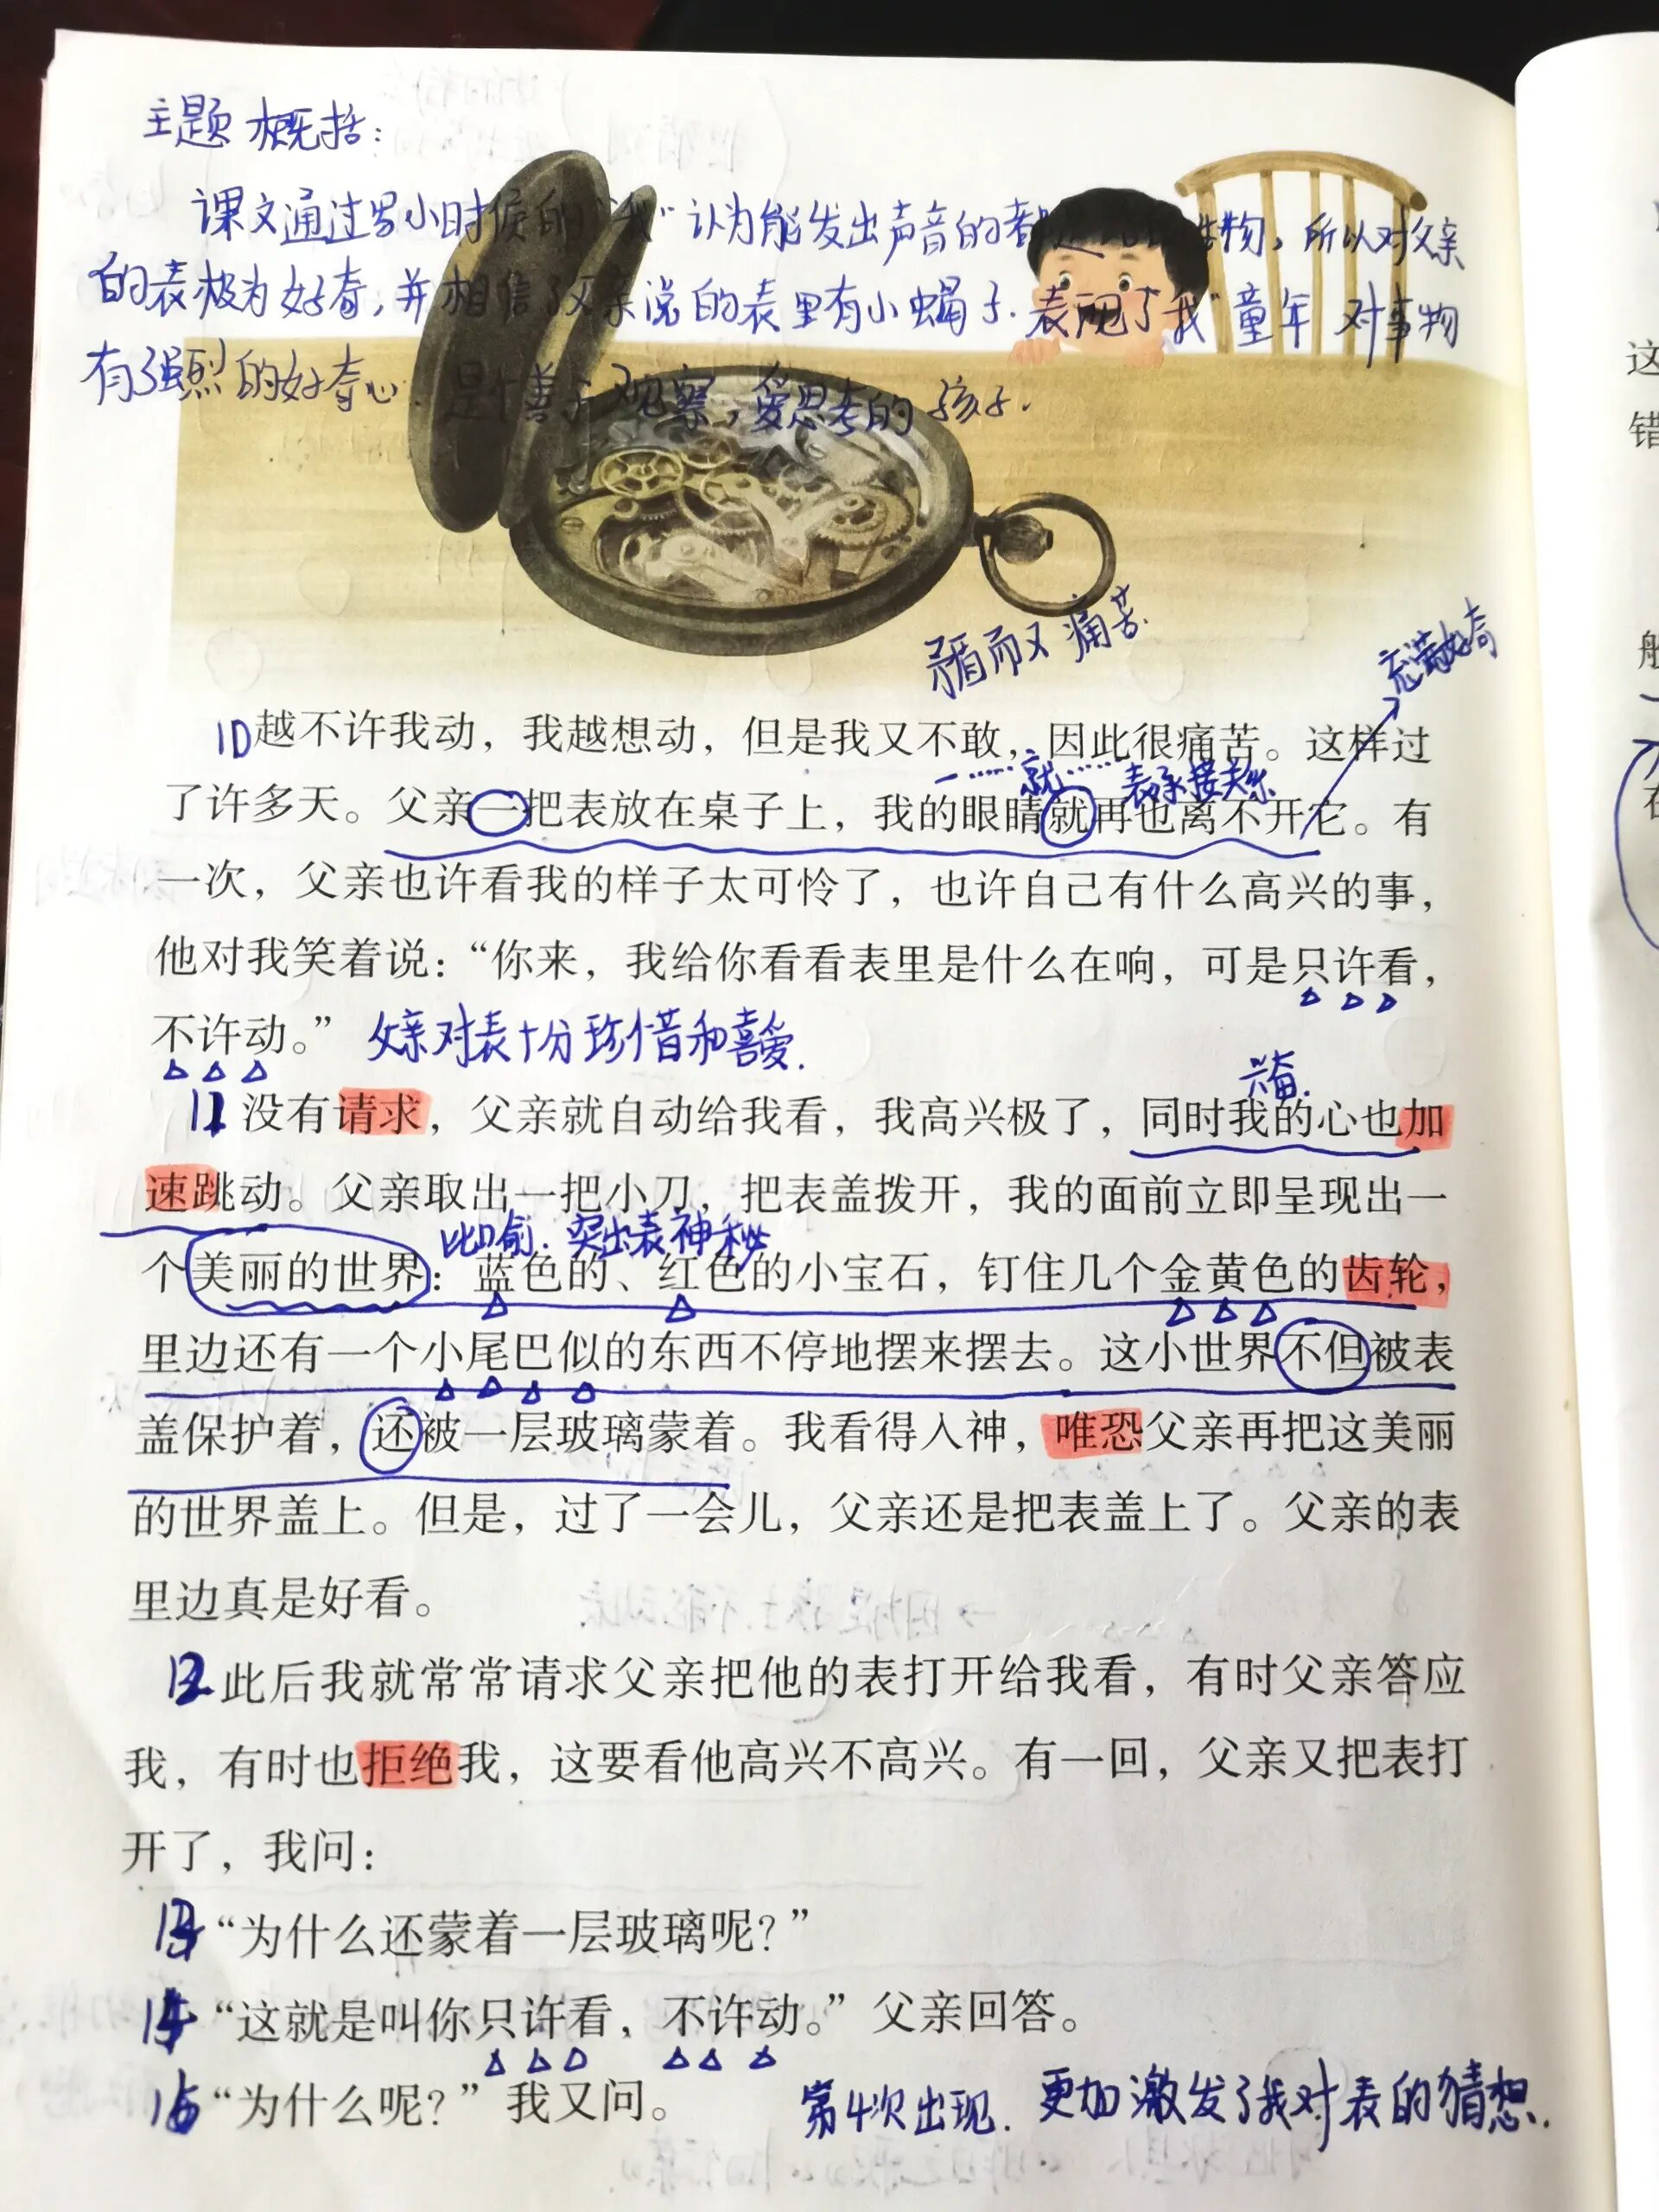 主题概括：
课文通过写小时候的“我”认为能发出声音的都是 物，所以对父亲
的表极为好奇，并相信了父亲说的表里有小蝎子。表现了我”童年 对事物
有强烈的好奇心。是个善于观察，爱思考的孩子。
矛盾而又痛苦
充满好奇
10 越不许我动，我越想动，但是我又不敢，因此很痛苦。这样过
一……就……表承接关系
了许多天。父亲一把表放在桌子上，我的眼睛就再也离不开它。有
一次，父亲也许看我的样子太可怜了，也许自己有什么高兴的事，
他对我笑着说：“你来，我给你看看表里是什么在响，可是只许看，
不许动。” 父亲对表十分珍惜和喜爱.
兴奋.
11 没有请求，父亲就自动给我看，我高兴极了，同时我的心也加
速跳动。父亲取出一把小刀，把表盖拨开，我的面前立即呈现出一
比喻. 突出表神秘
个美丽的世界：蓝色的、红色的小宝石，钉住几个金黄色的齿轮，
里边还有一个小尾巴似的东西不停地摆来摆去。这小世界不但被表
盖保护着，还被一层玻璃蒙着。我看得入神，唯恐父亲再把这美丽
的世界盖上。但是，过了一会儿，父亲还是把表盖上了。父亲的表
里边真是好看。
12 此后我就常常请求父亲把他的表打开给我看，有时父亲答应
我，有时也拒绝我，这要看他高兴不高兴。有一回，父亲又把表打
开了，我问：
13 “为什么还蒙着一层玻璃呢？”
14 “这就是叫你只许看，不许动。”父亲回答。
15 “为什么呢？”我又问。 第4次出现. 更加激发了我对表的猜想.
这
错